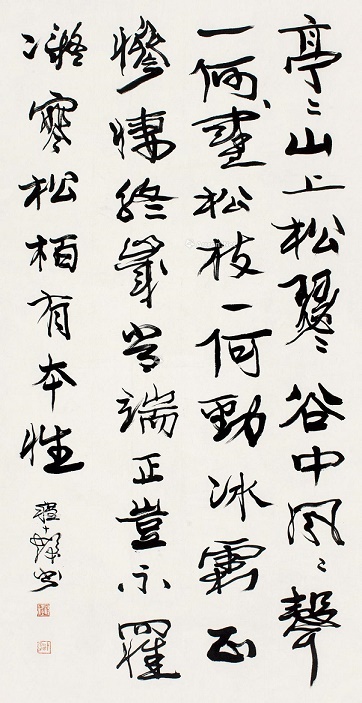 亭〻山上松瑟〻谷中风〻聲
一何盛松枝一何勁冰霜正
慘悽終歲常端正豈不罹
凝寒松柏有本性
書